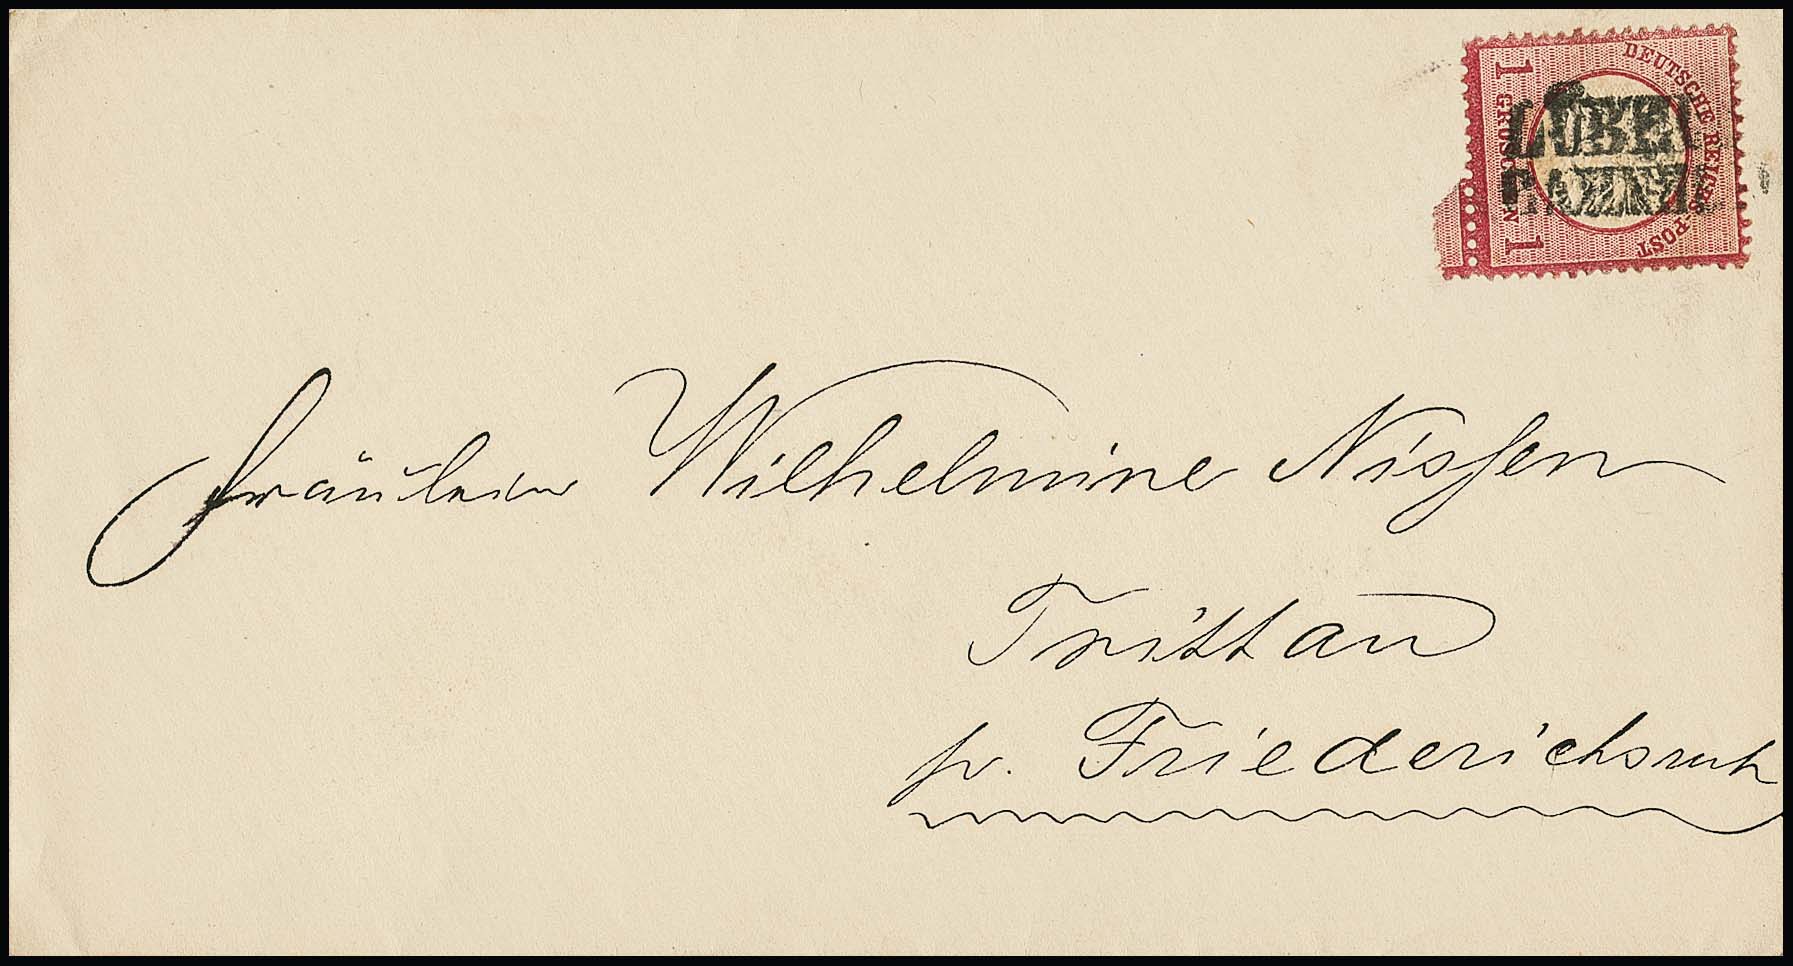 DEUTSCHE REICHS-POST
1 GROSCHEN 1
LÜBECK
BAHNH.
Fräulein Wilhelmine Nissen
Trittau
pr. Friederichsruh